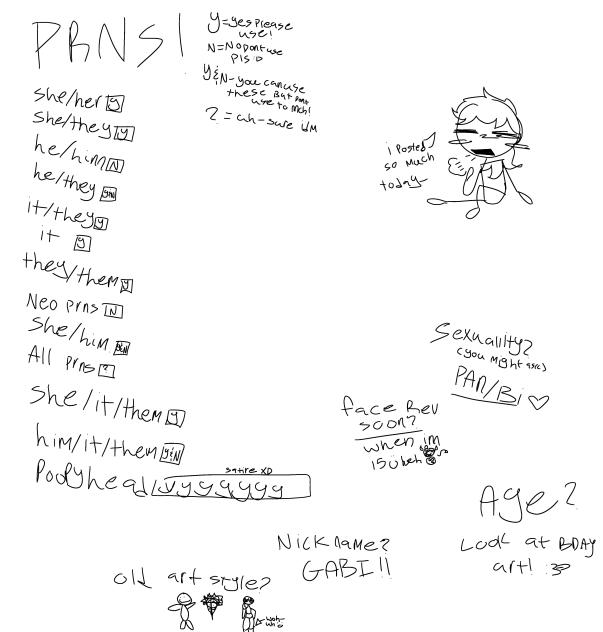 PRNS!
Y=yes please
use!
N=No dont use
pls :D
Y&N-you can use
these but dont
use to mch!
? = uh-sure IDM
she/her y
She/they y
he/him N
he/they y&N
it/they y
it y
they/them y
Neo prns N
She/him y&N
All prns ?
she/it/them y
him/it/them y&N
satire XD
Poopyhead yyyyyyy
i Posted
so much
today
Sexuality?
(you might ask)
PAN/Bi
face Rev
soon?
when im
15
Age?
Look at BDAY
art!
Nickname?
GABI!!
old art style?